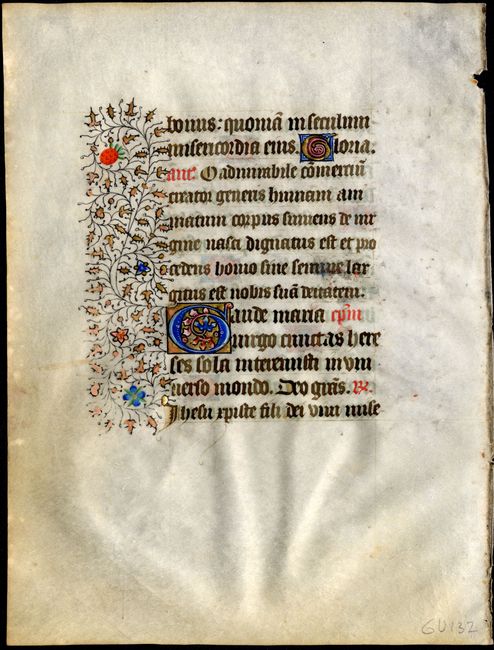 bonus: quoniā in seculum
misericordia eius. Gloria.
añt. O admirabile cōmerciū
creator generis humani ani
matum corpus sumens de vir
gine nasci dignatus est et pro
cedens homo sine semine lar
gitus est nobis suā deitatem.
Gaude maria cpm
virgo cunctas here
ses sola interemisti in vni
uerso mondo. Deo grãs. R.
Jhesu xpiste fili dei viui mise
GU132